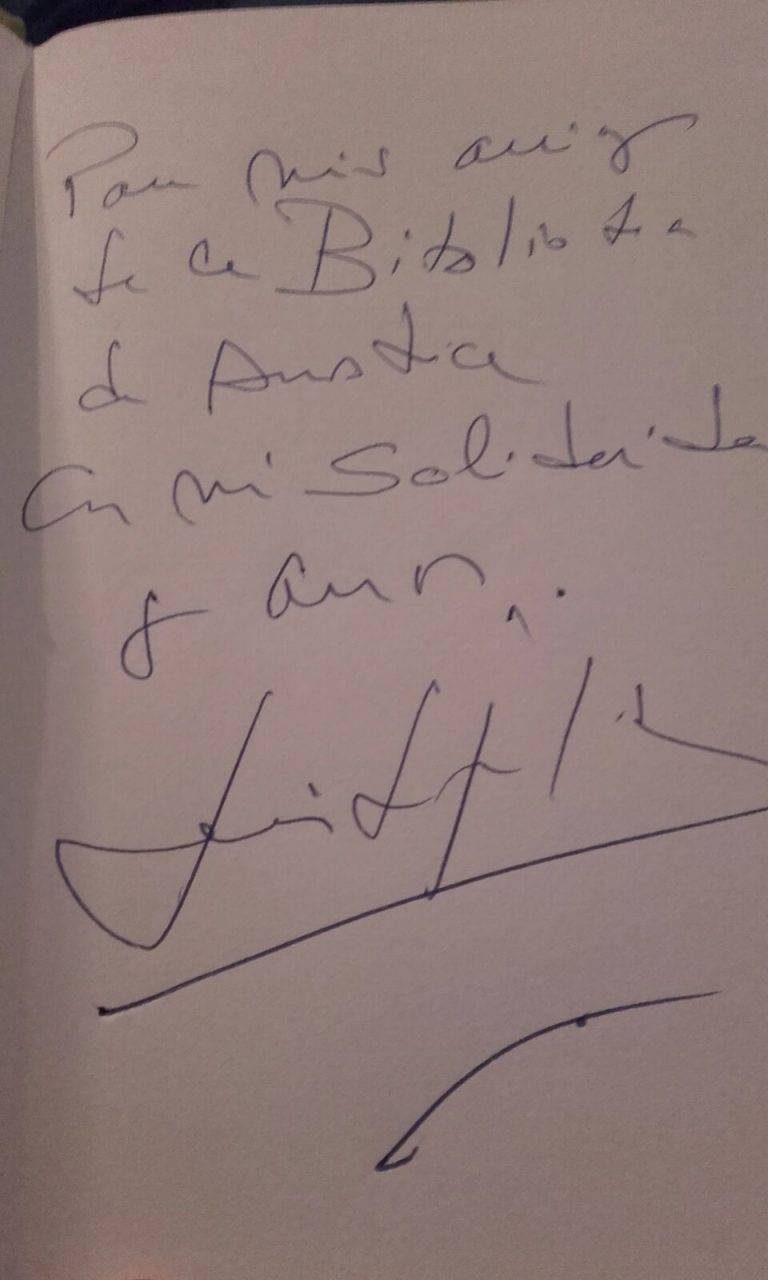 Para mis amigos
de la Biblioteca
de Austica
Con mi Solidaridad
y amor,